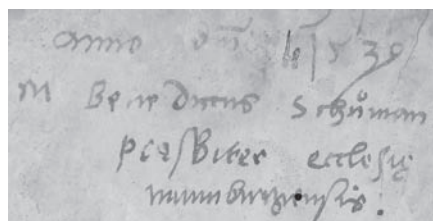 anno dn̄i 1539
M Benedictus Schůman
presbiter ecclesię
numburgensis.